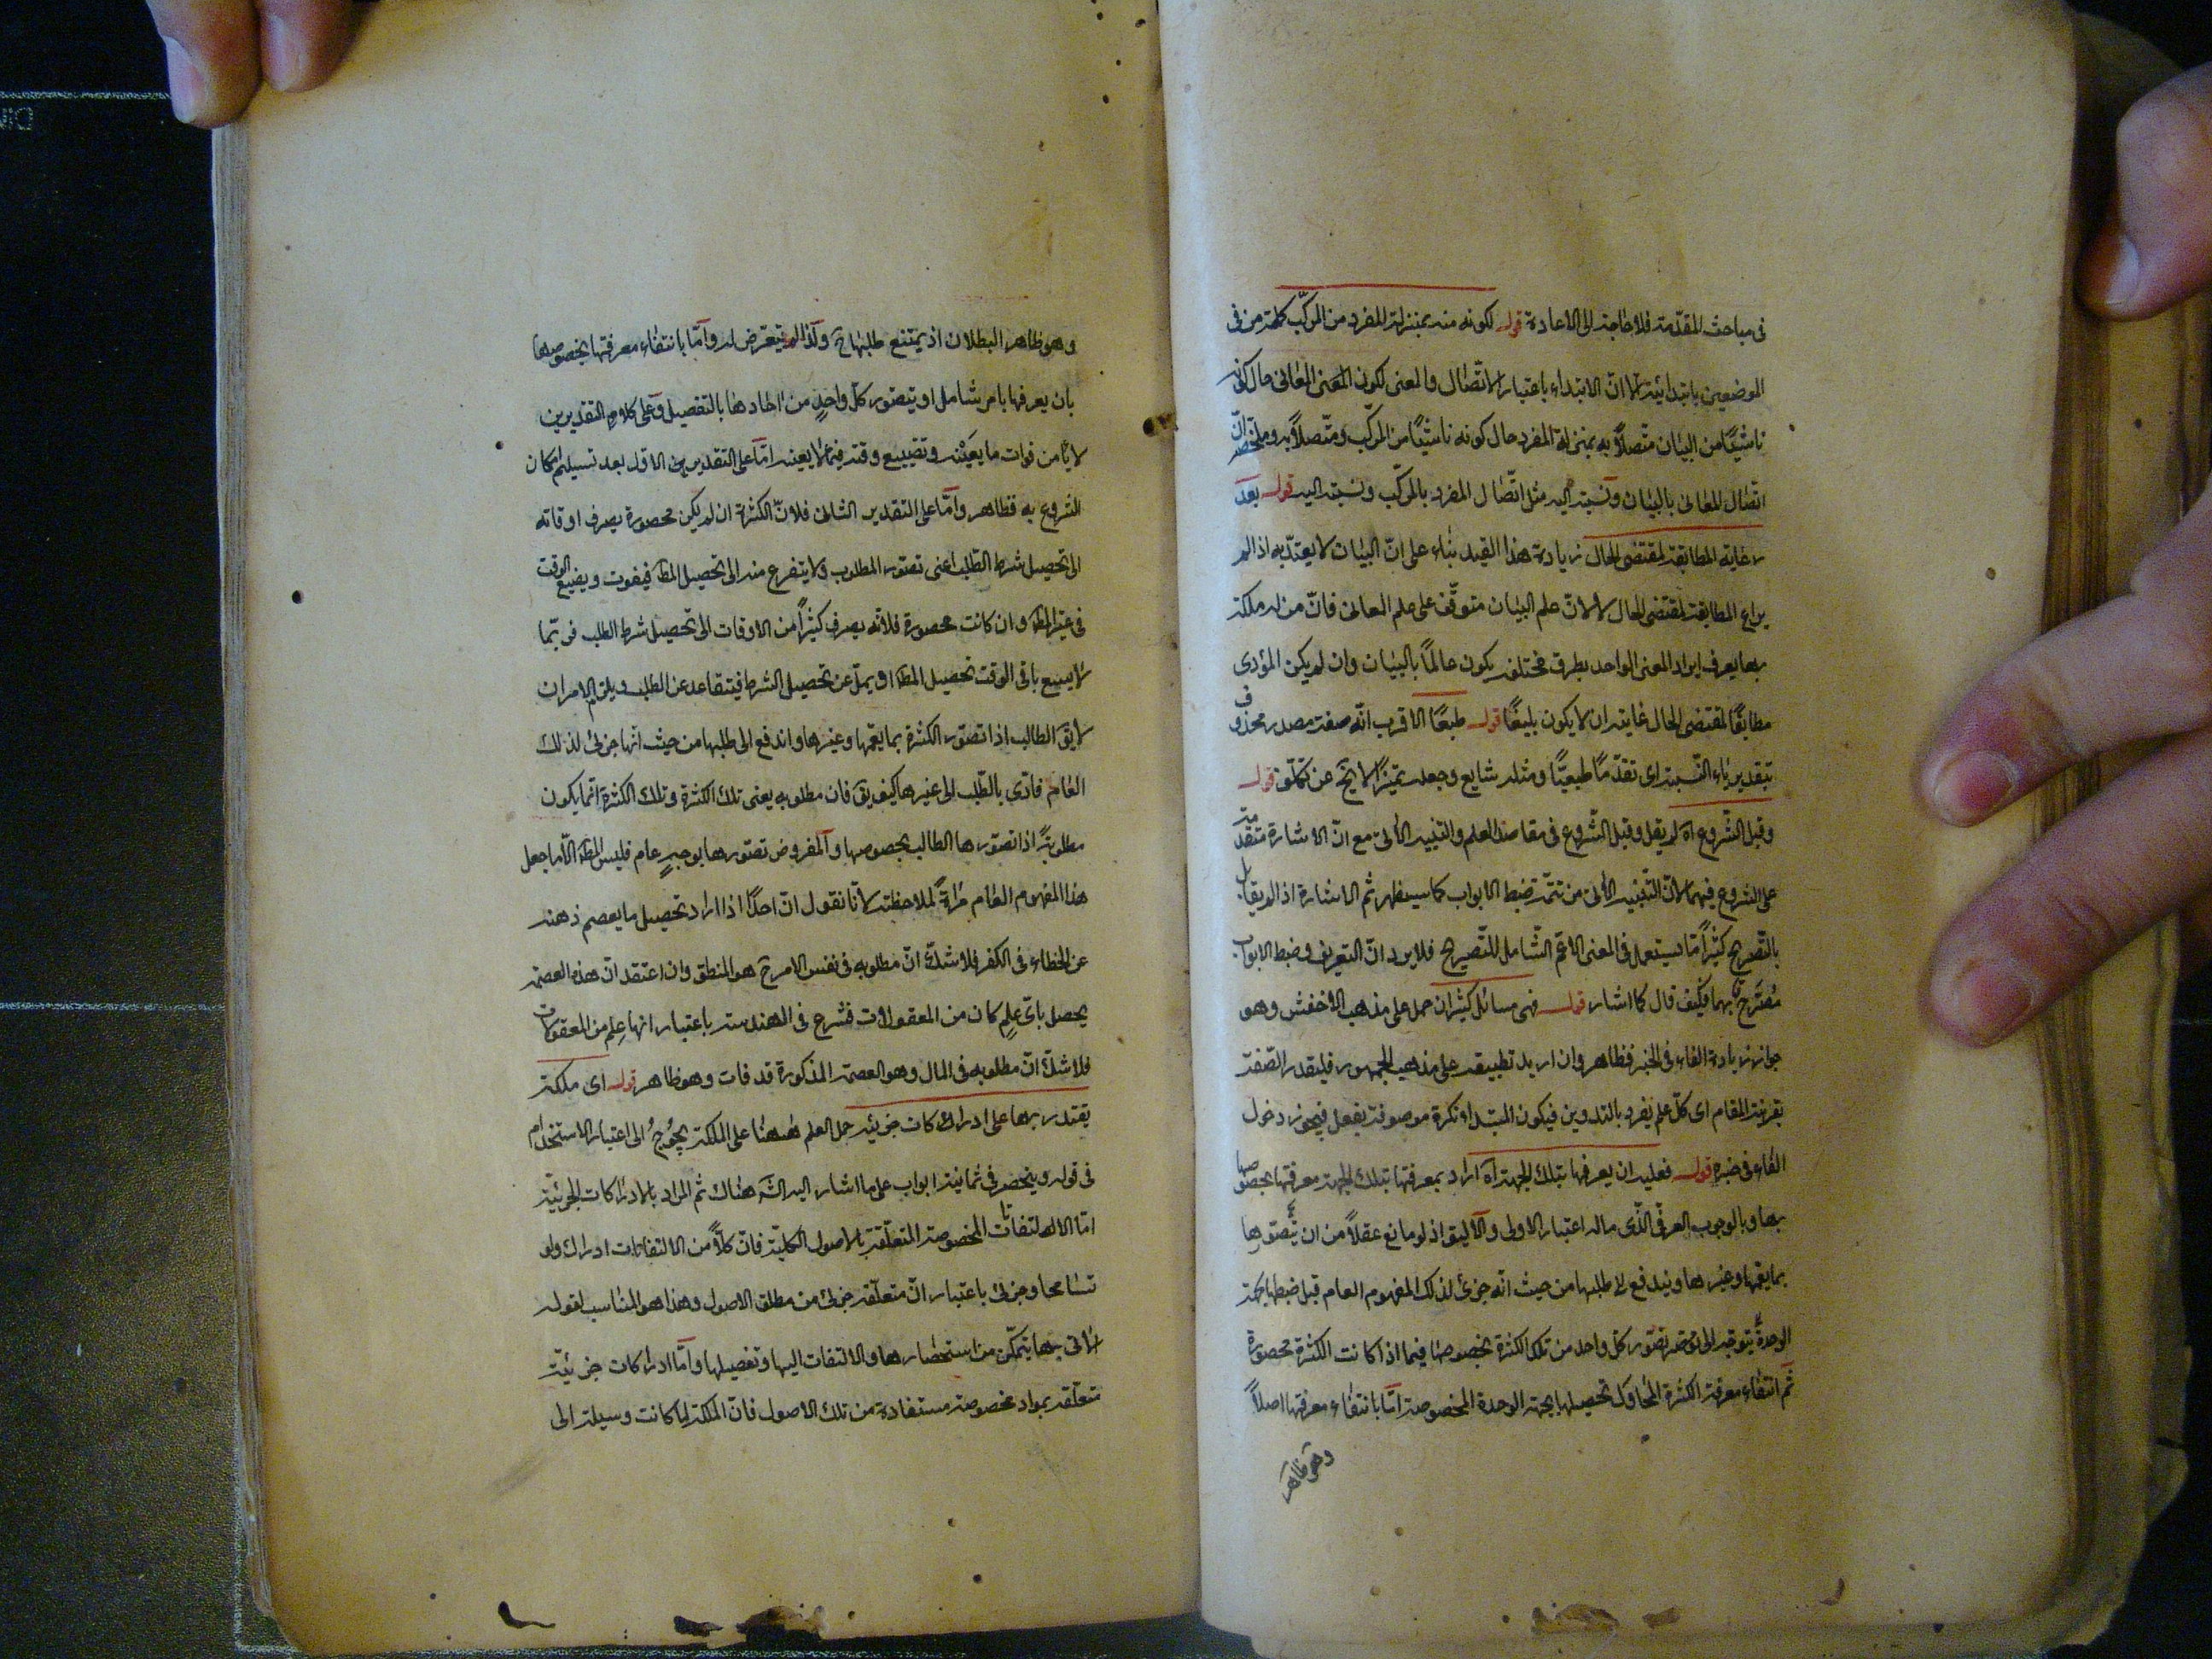 فى مباحث المقدّمة فلا حاجة الى الاعادة قوله لكونه منه بمنزلة المفرد من المركّب كلمة من فى
الموضعين ابتدائية الا انّ الابتداء باعتبار الاتّصال والمعنى لكون المعنى المعانى حال كونه
ناشئًا من البيان متّصلاً به بمنزلة المفرد حال كونه ناشئًا من المركّب ومتّصلاً به وملخّصه انّ
اتّصال المعانى بالبيان ونسبته اليه مثل اتّصال المفرد بالمركّب ونسبته اليه قوله بعد
رعاية المطابقة لمقتضى الحال زيادة هذا القيد بناء على انّ البيان لا يعتدّ به اذا لم
يراع المطابقة لمقتضى الحال لا لانّ علم البيان متوقّف على علم المعانى فانّ من له ملكة
بها يعرف ايراد المعنى الواحد بطرق مختلفة يكون عالمًا بالبيان وان لم يكن المؤدى
مطابقًا لمقتضى الحال غايته ان لا يكون بليغًا قوله طبعًا الاقرب انّه صفة مصدر محذوف
بتقدير ياء النسبة اى تقدّمًا طبيعيًّا ومثله شايع وجعله تميزًا لا يخ عن تكلّف قوله
وقبل الشروع آه لم يقل وقبل الشروع فى مقاصد العلم والتنبيه الآتى مع انّ الاشارة متقدّمة
على الشروع فيهما لانّ التنبيه الآتى من تتمّة ضبط الابواب كما سيظهر ثم الاشارة اذا لم يقابل
بالتّصريح كثيرًا مّا يستعمل فى المعنى الاعمّ الشّامل للتّصريح فلا يرد انّ التعريف وضبط الابواب
مصرّح بهما فكيف قال كما اشار قوله فهى مسائل كثيرة ان حمل على مذهب الاخفش وهو
جواز زيادة الفاء فى الخبر فظاهر وان اريد تطبيقه على مذهب الجمهور فليقدر الصّفة
بقرينة المقام اى كلّ علم يفرد بالتدوين فيكون المبتداء نكرة موصوفة بفعل فيجوز دخول
الفاء فى خبره قوله فعليه ان يعرفها بتلك الجهة آه اراد بمعرفتها بتلك الجهة معرفتها بخصوصها
بها وبالوجوب العرفى الّذى مآله اعتبار الاولى والاليق اذ لا مانع عقلاً من ان يتصوّرها
بما يعمّها وغيرها ويندفع الى طلبها من حيث انّه جزئ لذلك المفهوم العام قبل ضبطها بجهة
الوحدة او يتوجه الى تصوّر كلّ واحد من تلك الكثرة بخصوصها فيما اذا كانت الكثرة محصورة
ثم انتفاء معرفة الكثرة المحاول تحصيلها بجهة الوحدة المخصوصة امّا بانتفاء معرفتها اصلاً
وهو ظاهر
وهو ظاهر البطلان اذ يمتنع طلبها ح ولذا لم يتعرّض له وامّا بانتفاء معرفتها بخصوصها
بان يعرفها بامر شامل او يتصوّر كلّ واحد من آحادها بالتفصيل وعلى كلا التقديرين
لا يأمن فوات ما يعنيه وتضييع وقته فيما لا يعنيه امّا على التقدير الاوّل بعد تسليم امكان
الشروع به فظاهر وامّا على التقدير الثانى فلانّ الكثرة ان لم يكن محصورة يصرف اوقاته
الى تحصيل شرط الطّلب اعنى تصوّر المطلوب ولا يتفرغ منه الى تحصيل المط فيفوت ويضيع الوقت
فى غير المط وان كانت محصورة فلانّه يصرف كثيرًا من الاوقات الى تحصيل شرط الطلب فربّما
لا يسع باقى الوقت تحصيل المط او يملّ عن تحصيل الشرط فيتقاعد عن الطلب ويلزم الامران
لا يق الطالب اذا تصوّر الكثرة بما يعمّها وغيرها واندفع الى طلبها من حيث انها جزئ لذلك
العام فادّى بالطّلب الى غيرها كيف يق فات مطلوبه يعنى تلك الكثرة وتلك الكثرة انّما يكون
مطلوبة اذا تصوّرها الطالب بخصوصها والمفروض تصوّرها بوجه عام فليس المط الّا ما جعل
هذا المفهوم العام مرآةً لملاحظته لانّا نقول انّ احدًا اذا اراد تحصيل ما يعصم ذهنه
عن الخطاء فى الفكر فلا شكّ انّ مطلوبه فى نفس الامر ح هو المنطق وان اعتقد انّ هذه العصمة
يحصل باىّ علم كان من المعقولات فشرع فى الهندسة باعتبار انها علم من المعقولات
فلا شكّ انّ مطلوبه فى المآل وهو العصمة المذكورة قد فات وهو ظاهر قوله اى ملكة
يقتدر بها على ادراكات جزئية حمل العلم ههنا على الملكة يحوج الى اعتبار الاستخدام
فى قوله وينحصر فى ثمانية ابواب على ما اشار اليه الشه هناك ثم المراد بالادراكات الجزئية
امّا الالتفاتات المخصوصة المتعلّقة بالاصول الكلية فانّ كلّاً من الالتفاتات ادراك ولو
تسامحا وجزئ باعتبار انّ متعلّقه جزئ من مطلق الاصول وهذا هو المناسب لقوله
الآتى بها يتمكّن من استحضارها والالتفات اليها وتفصيلها وامّا ادراكات جزئيّة
متعلّقة بمواد مخصوصة مستفادة من تلك الاصول فانّ الملكة لما كانت وسيلة الى